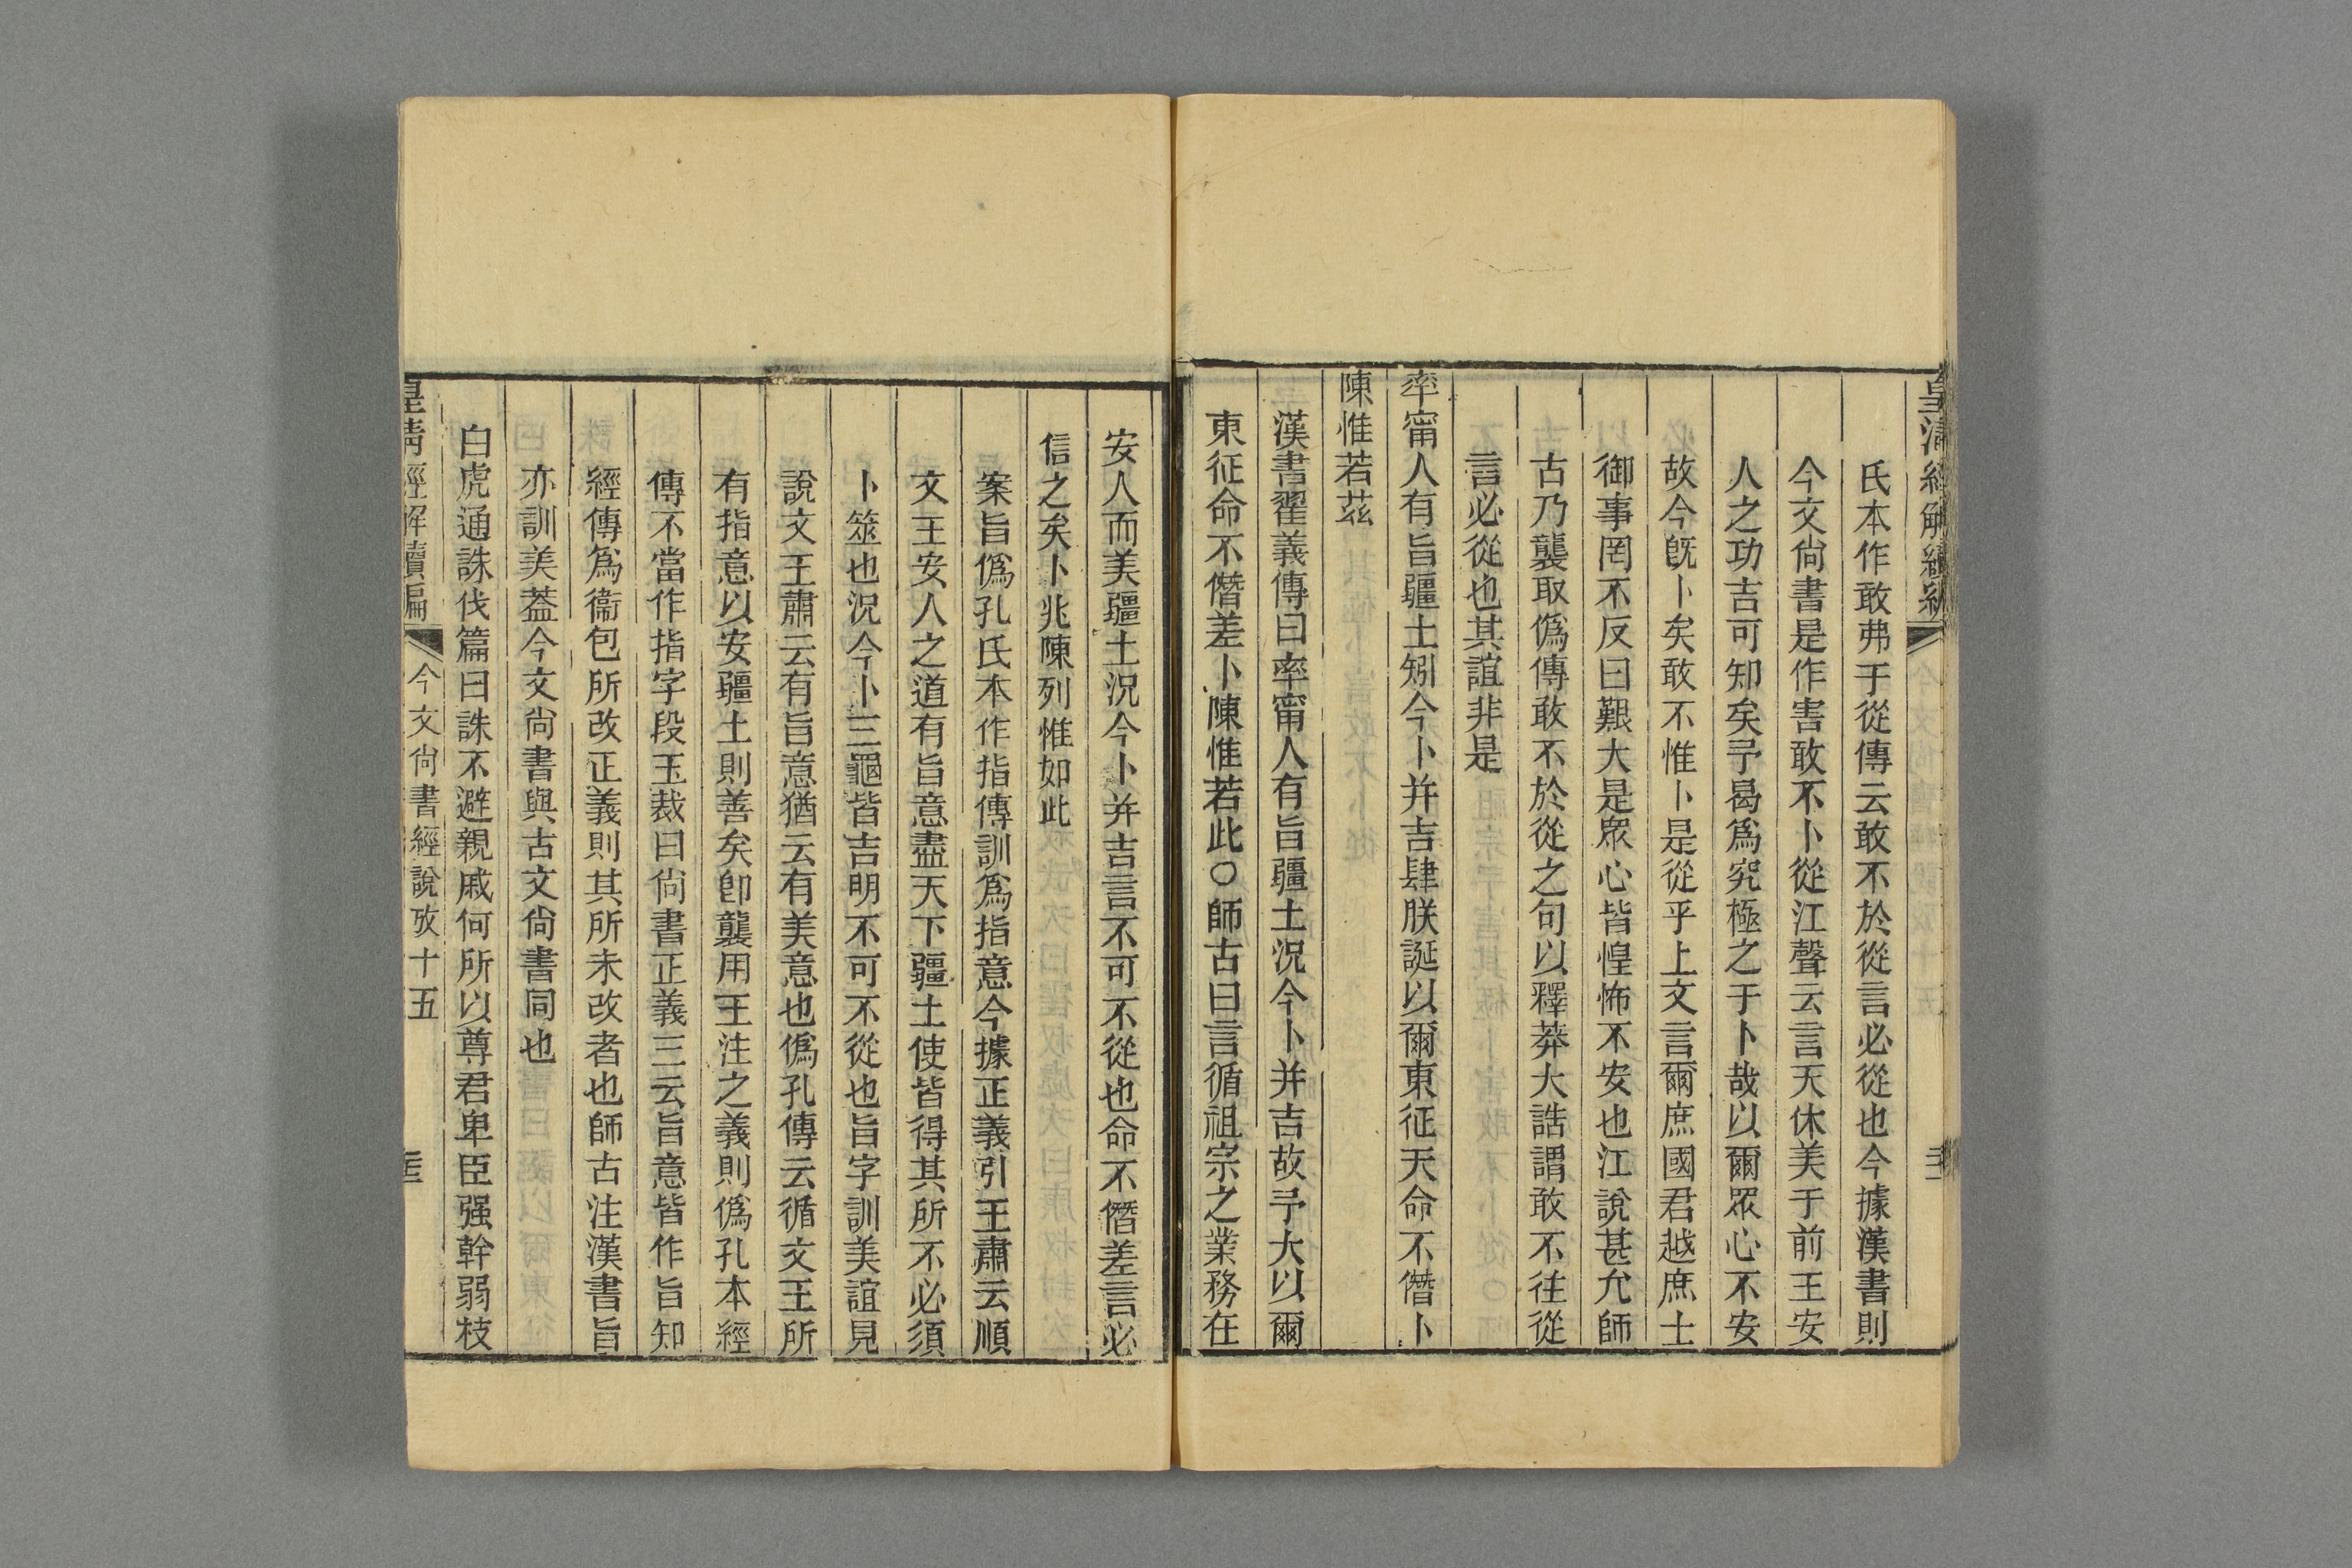 皇清經解續編
氏本作敢弗于從傳云敢不於從言必從也今據漢書則
今文尙書是作害敢不卜從江聲云言天休美于前王安
人之功吉可知矣予曷爲究極之于卜哉以爾眾心不安
故今旣卜矣敢不惟卜是從乎上文言爾庶國君越庶士
御事罔不反曰艱大是眾心皆惶怖不安也江說甚允師
古乃襲取僞傳敢不於從之句以釋莽大誥謂敢不往從
言必從也其誼非是
率甯人有旨疆土矧今卜并吉肆朕誕以爾東征天命不僭卜
陳惟若茲
漢書翟義傳曰率甯人有旨疆土況今卜并吉故予大以爾
東征命不僭差卜陳惟若此○師古曰言循祖宗之業務在
安人而美疆土況今卜并吉言不可不從也命不僭差言必
信之矣卜兆陳列惟如此
案旨僞孔氏本作指傳訓爲指意今據正義引王肅云順
文王安人之道有旨意盡天下疆土使皆得其所不必須
卜筮也況今卜三龜皆吉明不可不從也旨字訓美誼見
說文王肅云有旨意猶云有美意也僞孔傳云循文王所
有指意以安疆土則善矣卽襲用王注之義則僞孔本經
傳不當作指字段玉裁曰尙書正義三云旨意皆作旨知
經傳爲衞包所改正義則其所未改者也師古注漢書旨
亦訓美葢今文尙書與古文尙書同也
白虎通誅伐篇曰誅不避親戚何所以尊君卑臣强幹弱枝
皇清經解續編 今文尙書經說攷十五